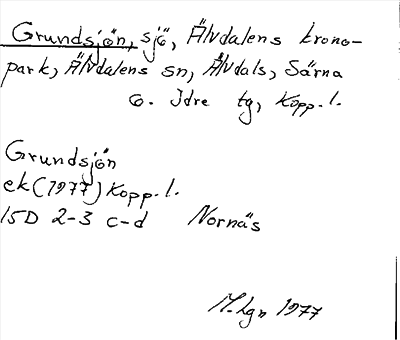 Grundsjön, sjö, Älvdalens krono-
park, Älvdalens sn, Älvdals, Särna
o. Idre tg, Kopp. l.
Grundsjön
ek (1977) Kopp. l.
15D 2-3 c-d Nornäs
M. Lgn 1977